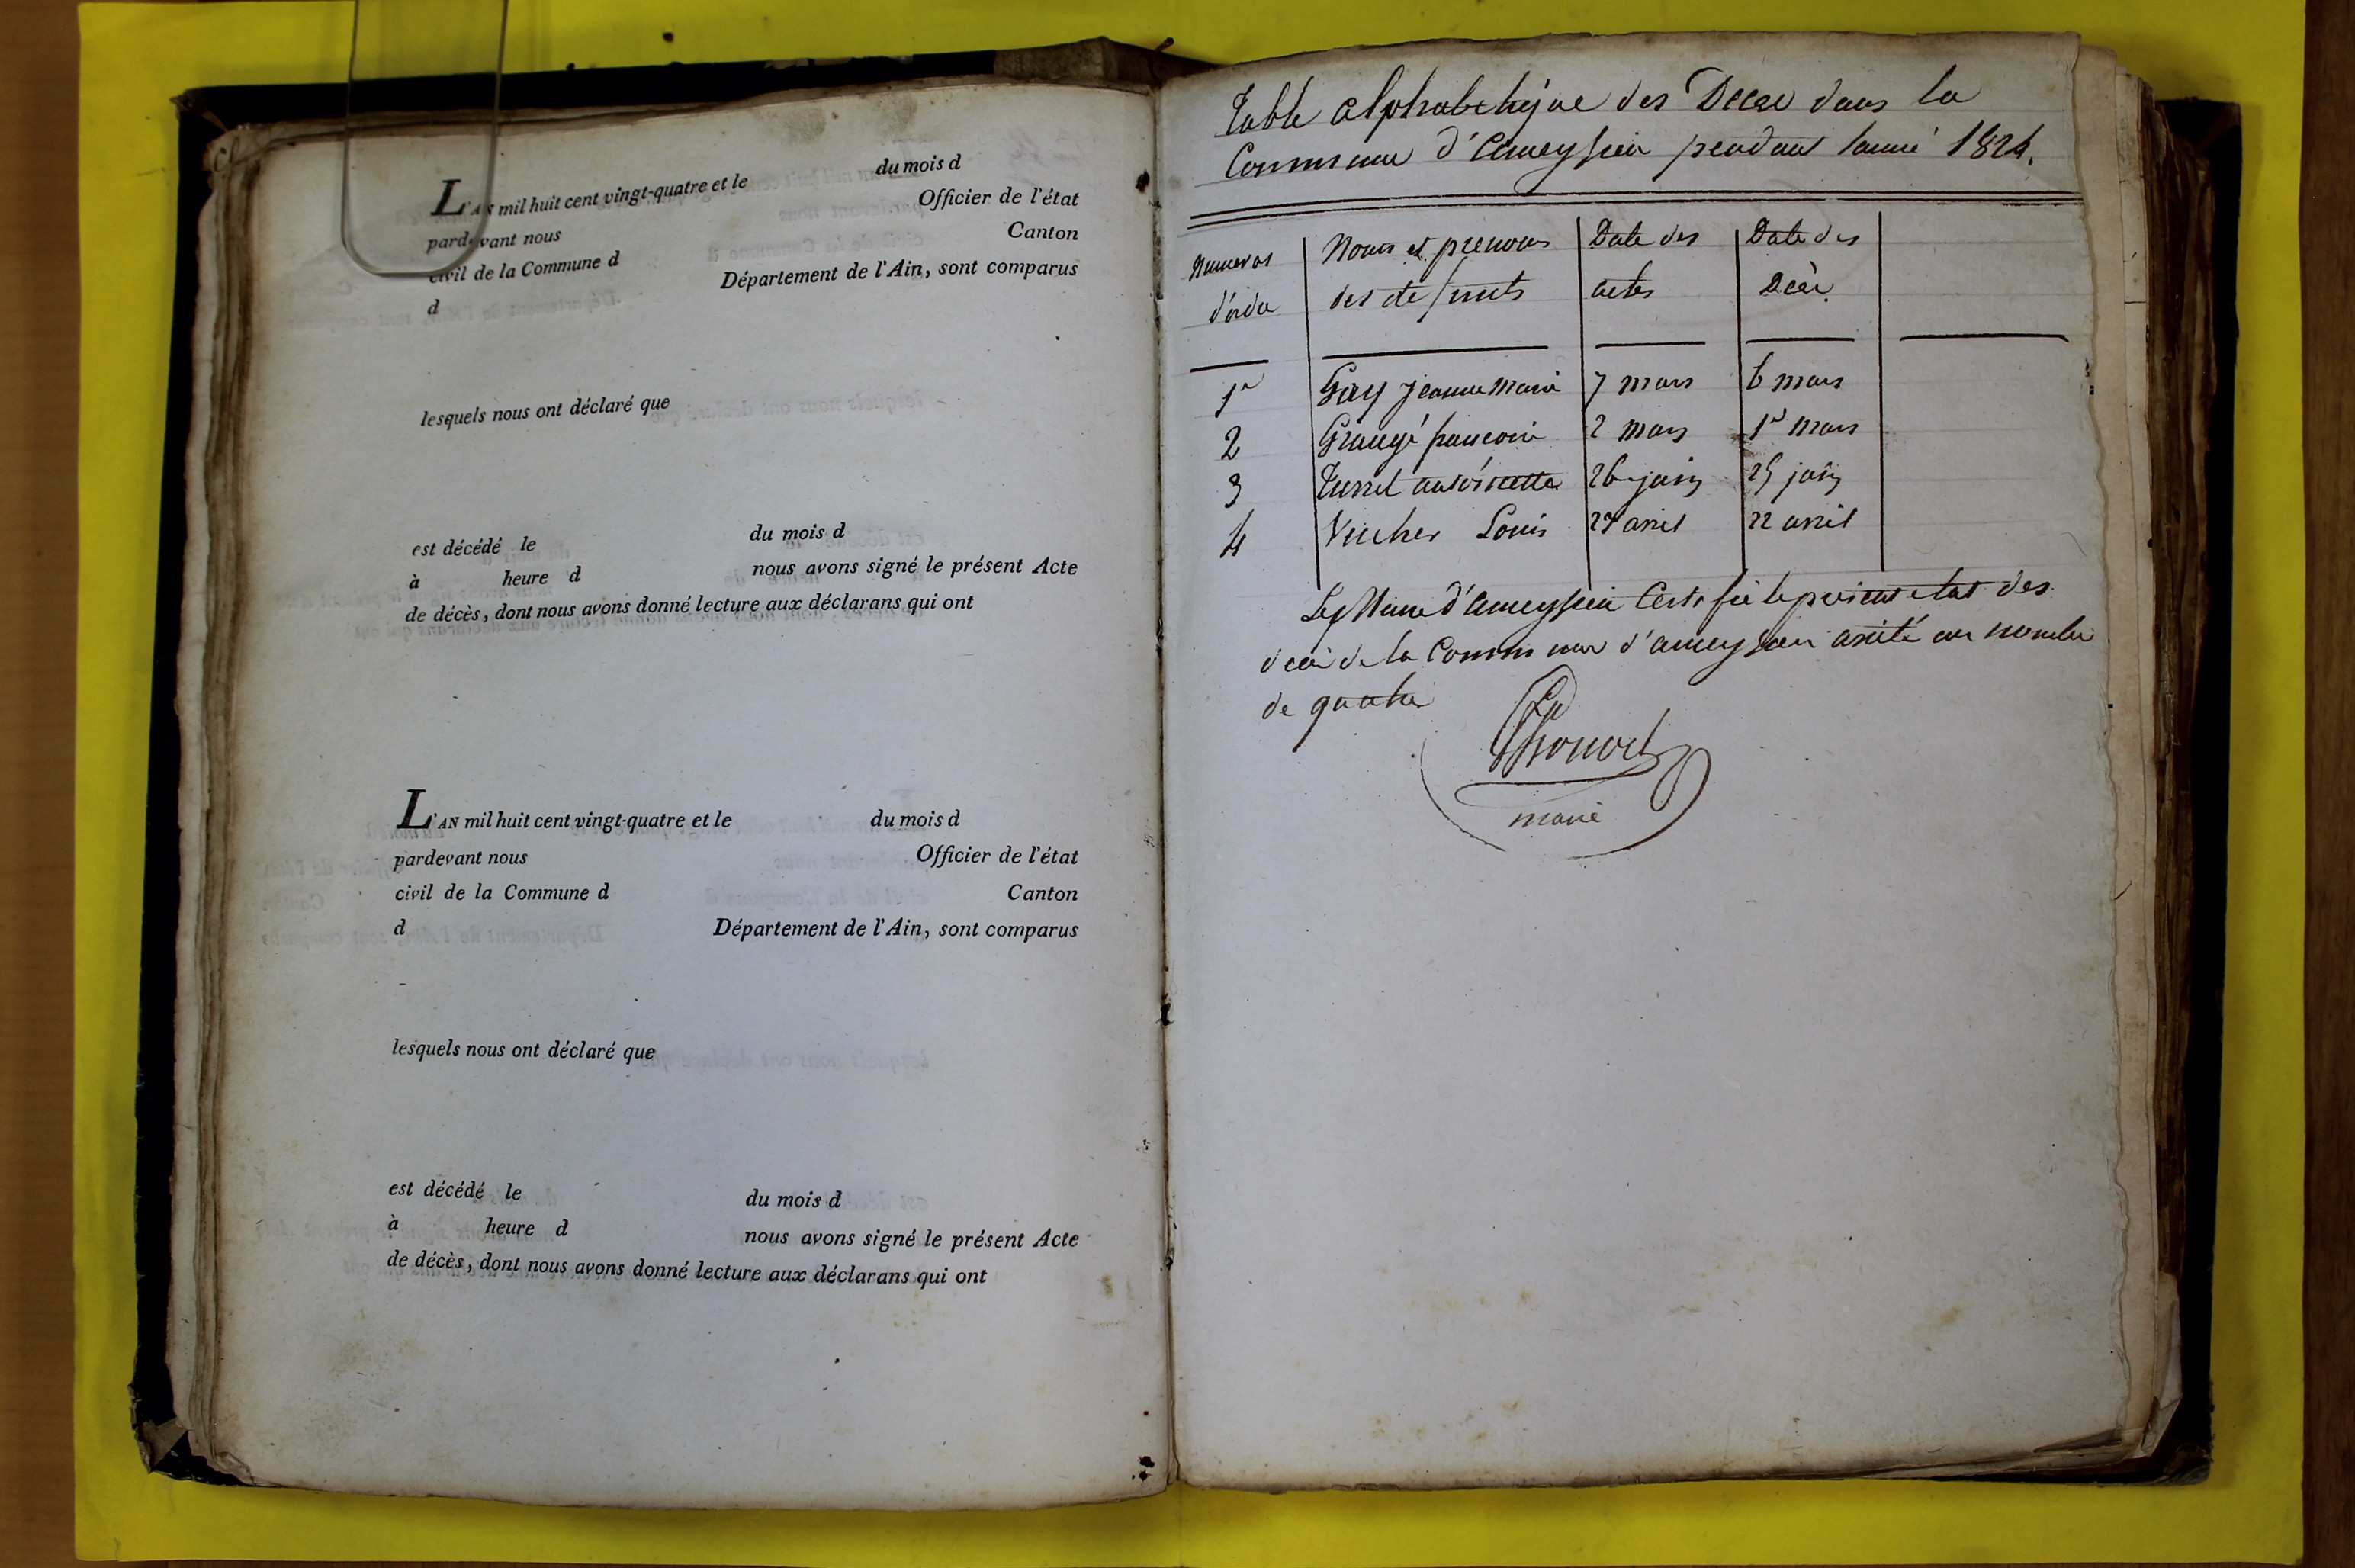 L'AN mil huit cent vingt-quatre et le du mois d
pardevant nous Officier de l'état
civil de la Commune d Canton
d Département de l'Ain, sont comparus
lesquels nous ont déclaré que
est décédé le du mois d
à heure d nous avons signé le présent Acte
de décès, dont nous avons donné lecture aux déclarans qui ont
L'AN mil huit cent vingt-quatre et le du mois d
pardevant nous Officier de l'état
civil de la Commune d Canton
d Département de l'Ain, sont comparus
lesquels nous ont déclaré que
est décédé le du mois d
à heure d nous avons signé le présent Acte
de décès, dont nous avons donné lecture aux déclarans qui ont
Table alphabetique des Deces dans la
Commune d'ameyzieu pendant lanné 1824.
Numeros Noms et prenoms Date des Date des
d'ordre des defunts actes Décès
1r Gay jeanne Marie 7 mars 6 mars
2 Grangé francoise 2 mars 1r mars
3 antoinette 26 juin 25 juin
4 Vucher Louis 27 avril 22 avril
Le Maire d'ameyzieu Certifie le présent état des
décès de la Commune d'ameyzieu arrêté au nombre
de quatre
maire